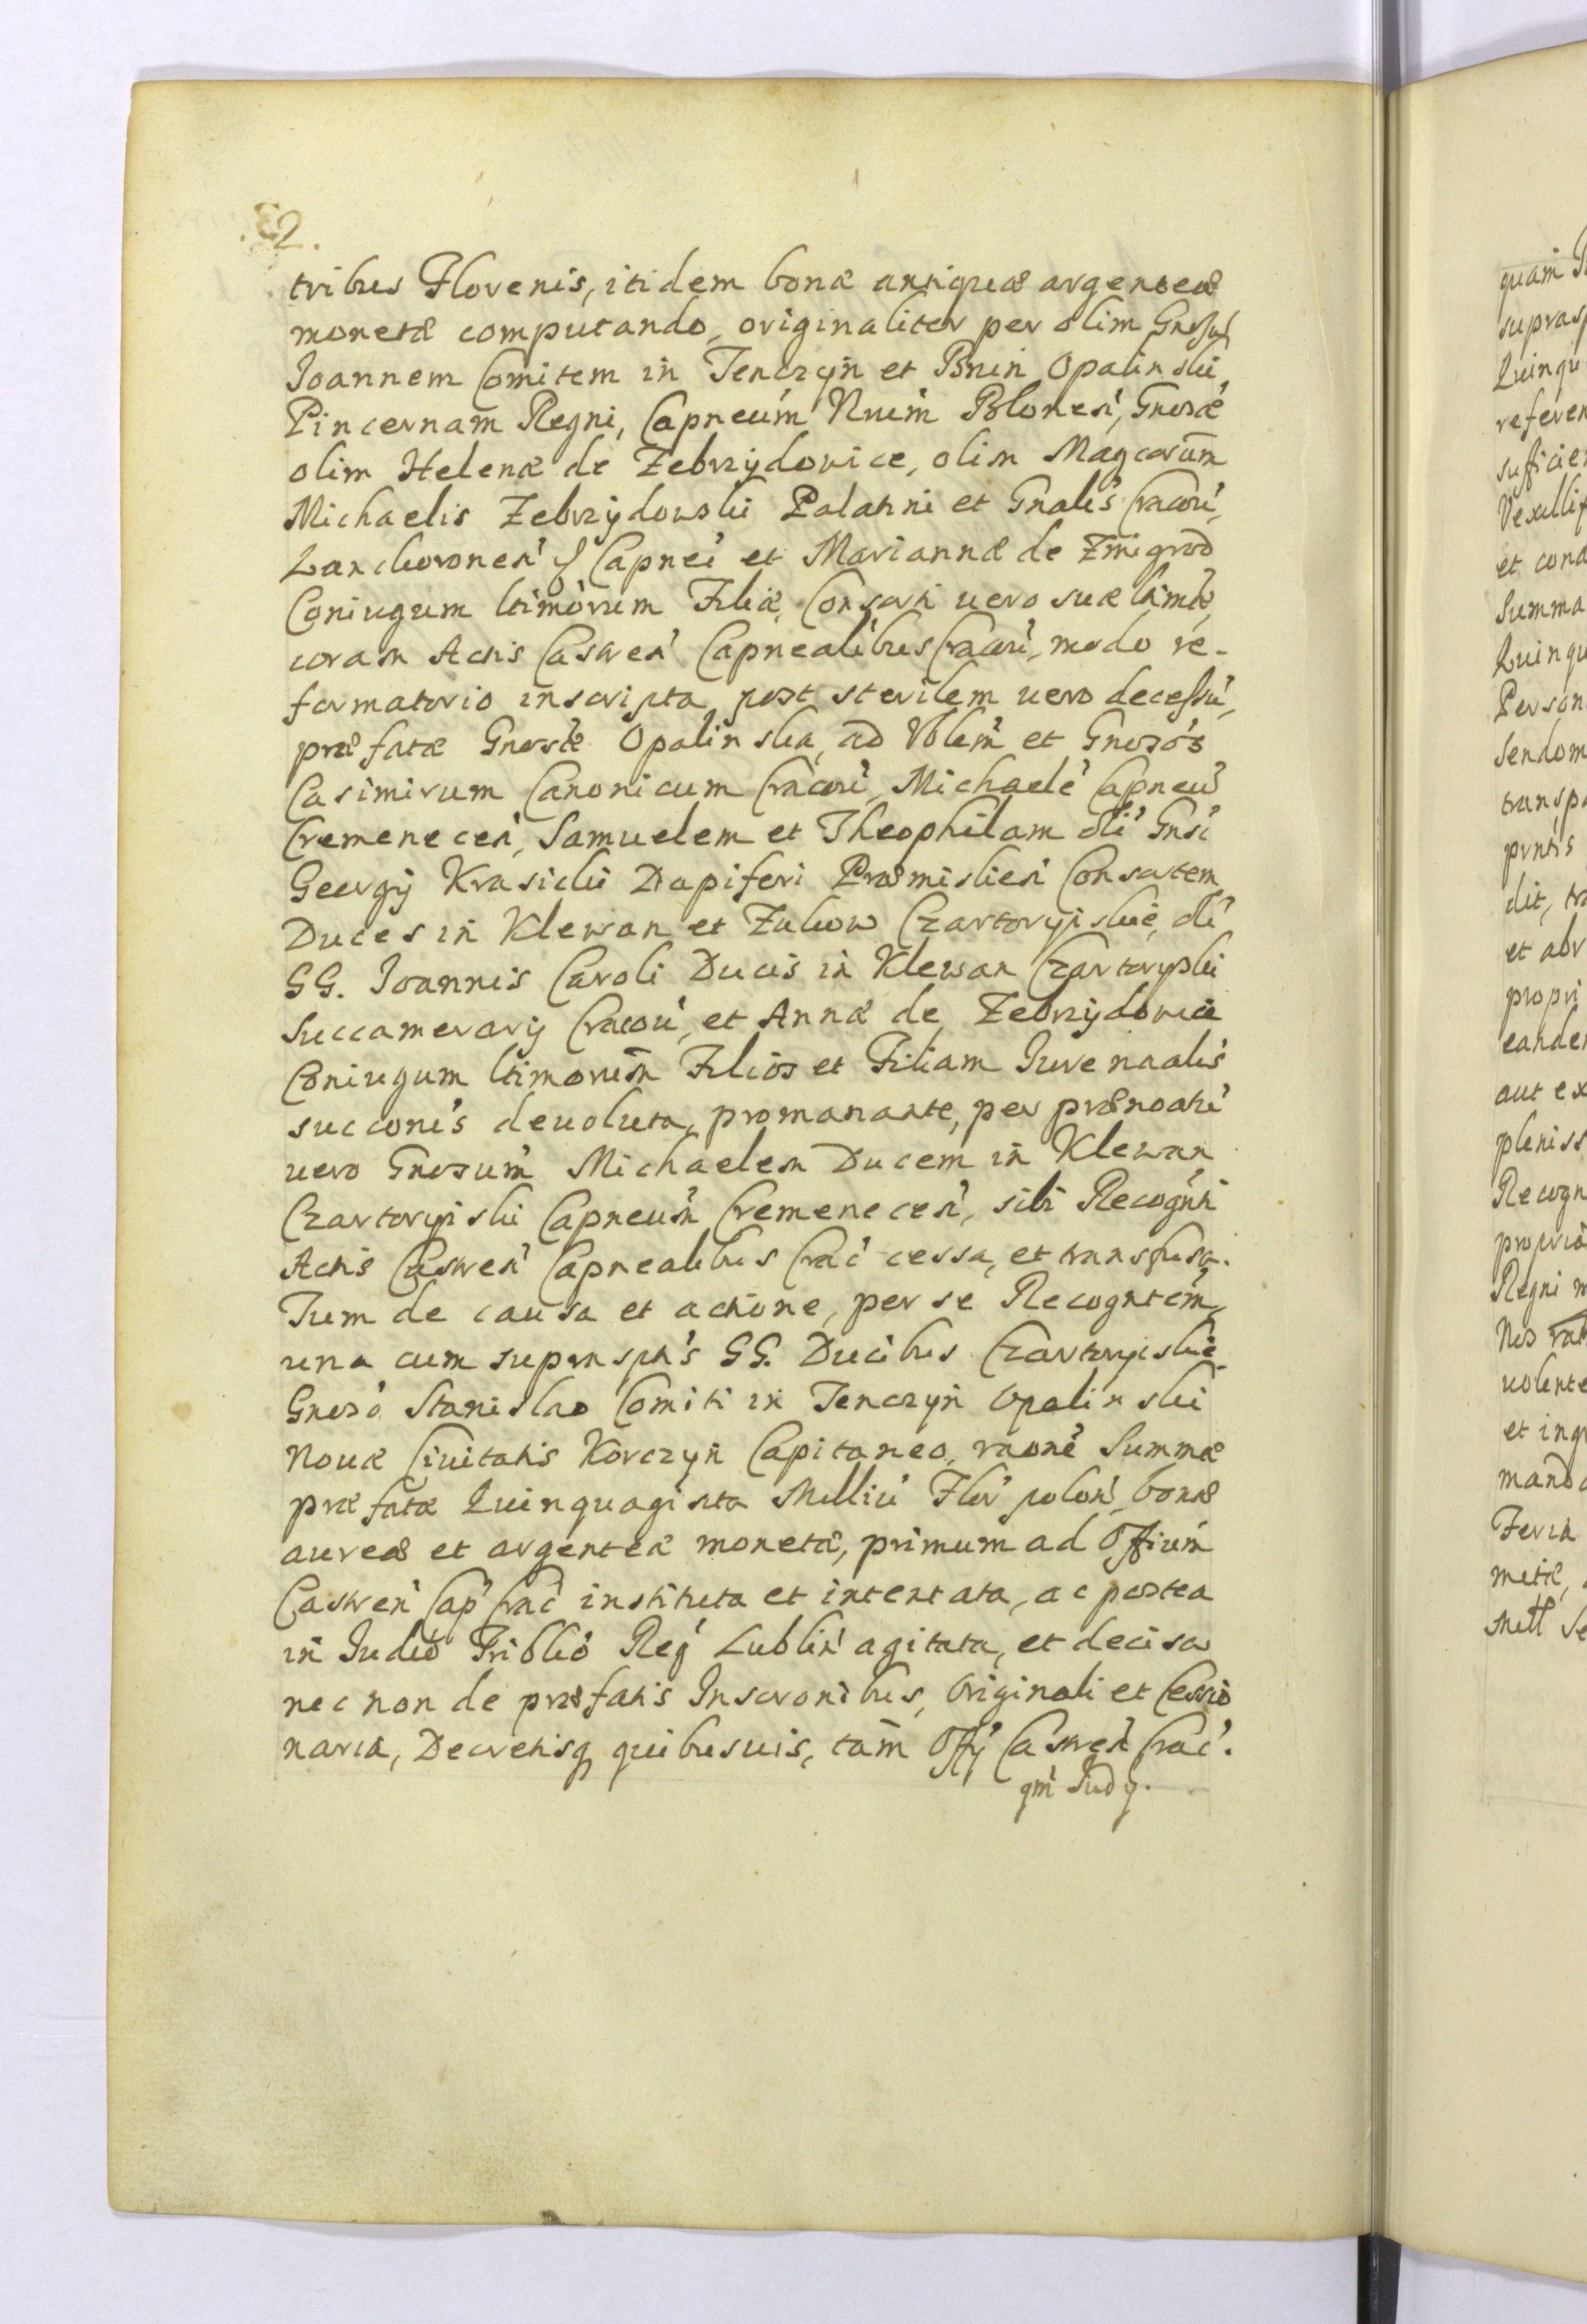 2.
tribus Florenis, itidem bonæ antiquæ argenteæ
monetæ computando, originaliter per olim Gnosum
Joannem Comitem in Tenczyn et Bnin Opalinski,
Pincernam Regni, Capneum Nuum Polonen', Gnosæ
olim Helenæ de Zebrzydowice, olim Magcorum
Michaelis Zebrzydowski Palatini et Gnalis Cracou',
Lanckoronen' & Capnei et Mariannæ de Zmigrod
Coniugum ltimorum Filiæ, Consorti uero suæ ltimæ,
coram Actis Castren' Capnealibus Cracou', modo re-
formatorio inscripta, post sterilem uero decessu',
præfatæ Gnosæ Opalinska, ad Vblem et Gnosos
Casimirum Canonicum Cracou', Michaele' Capneu'
Cremenecen', Samuelem et Theophilam oli' Gnsi
Georgij Krasicki Dapiferi Præmislien' Consortem
Duces in Klewan et Zukow Czartoryiskie, oli'
GG. Joannis Caroli Ducis in Klewan Czartoryski
Succamerarij Cracou', et Annæ de Zebrzydowice
Coniugum ltimorum Filios et Filiam Jure naalis
succonis deuoluta, promanante, per prænoatu'
uero Gnosum Michaelem Ducem in Klewan
Czartoryiski Capneum Cremenecen', sibi Recognti
Actis Castren' Capnealibus Crac' cessa, et transfusa.
Tum de causa et actione, per se Recogntem,
una cum suprasptis GG. Ducibus Czartoryiskie
Gnoso Stanislao Comiti in Tenczyn Opalinski
Nouæ Ciuitatis Korczyn Capitaneo, raone Summæ
præfatæ Quinquaginta Milliu' Flor' polon' bonæ
aureæ et argenteæ monetæ, primum ad Offium
Castren' Cap' Crac' instituta et intentata, ac postea
in Judio Triblio Reg' Lublin' agitata, et decisa
nec non de præfatis Inscronibus, Originali et Cessio
naria, Decretisq quibusuis, tam Offij Castren' Crac'.
qm' Judij.